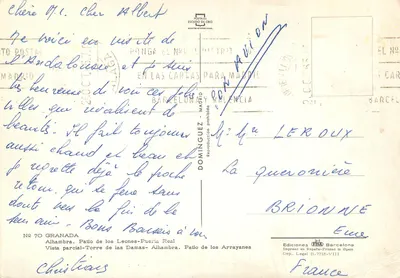 Chère M. Cher Albert
Me voici en visite de
l'Andalousie et je suis
très heureuse de voir ces jolies
villes qui rivalisent de
beauté. Il fait toujours
aussi chaud et beau et
je regrette déjà le proche
retour, qui se fera sans
doute vers la fin de la
semaine. Bons Baisers à vous
Christiane
Nº 70 GRANADA
Alhambra, Patio de los Leones-Puerta Real
Vista parcial-Torre de las Damas- Alhambra, Patio de los Arrayanes
DOMINGUEZ - MADRID
PAR AVION
PONGA EL Nº
EN LAS CARTAS PARA MADRID
BARCELONA VALENCIA
M. Mme LEROUX
La
BRIONNE
Eure
France
Ediciones Barcelona